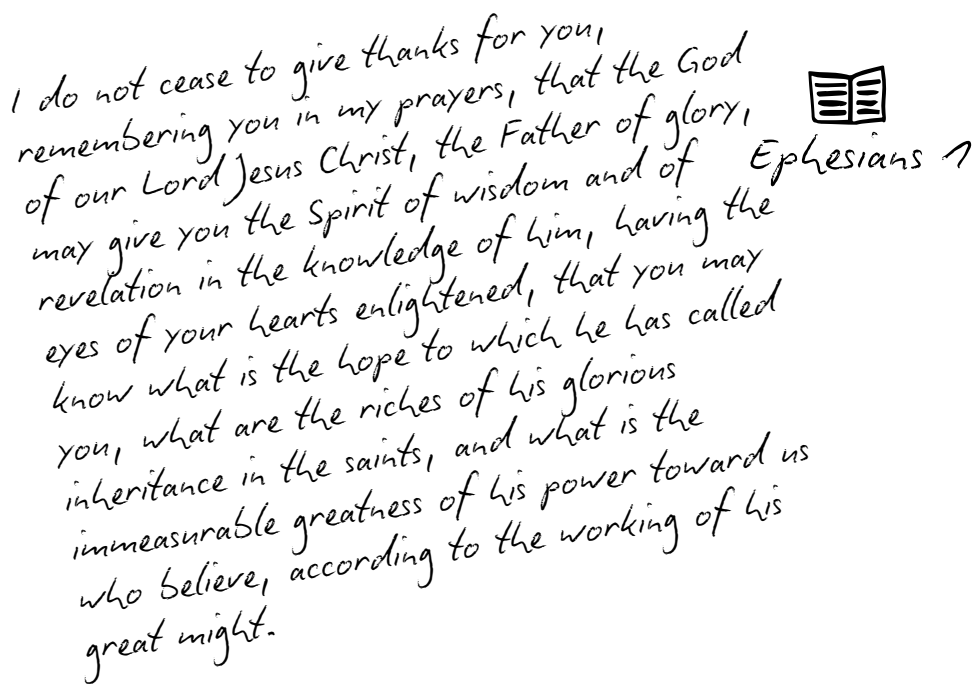 I do not cease to give thanks for you,
remembering you in my prayers, that the God
of our Lord Jesus Christ, the Father of glory,
may give you the Spirit of wisdom and of
revelation in the knowledge of him, having the
eyes of your hearts enlightened, that you may
know what is the hope to which he has called
you, what are the riches of his glorious
inheritance in the saints, and what is the
immeasurable greatness of his power toward us
who believe, according to the working of his
great might.
Ephesians 1